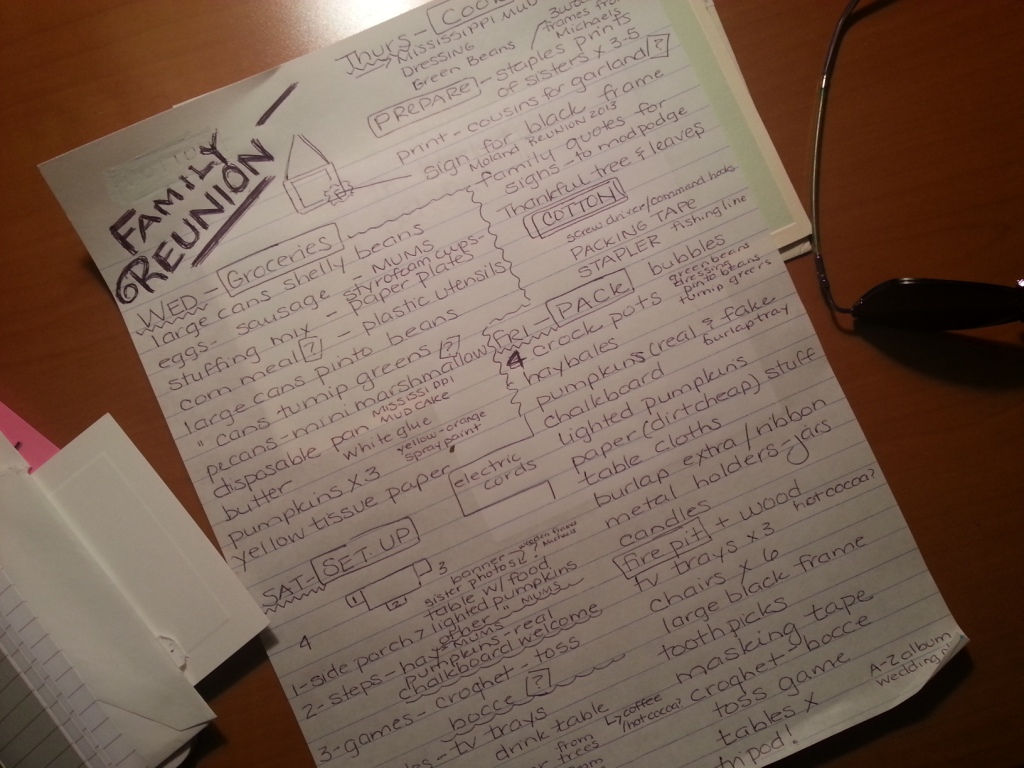 FAMILY
REUNION
Thurs-
MISSISSIPPI MUD
DRESSING
Green Beans
PREPARE - staples prints
of sisters x 3.5
frames from
Michaels
print - cousins for garland [?]
sign for black frame
REUNION 2013
family quotes for
signs - to modpodge
Thankful tree & leaves
COTTON
screw driver/command hooks
PACKING TAPE
STAPLER fishing line
WED - Groceries
large cans shelly beans
eggs - sausage - MUMS
stuffing mix - styrofoam cups -
paper plates
corn meal [?] - plastic utensils
large cans pinto beans
" cans turnip greens [?]
pecans - mini marshmallows
MISSISSIPPI
MUD CAKE
disposable pan
butter white glue
yellow-orange
spray paint
pumpkins x 3
yellow tissue paper
electric
cords
FRI - PACK bubbles
4 crock pots
green beans
pinto beans
turnip greens
haybales
pumpkins (real & fake
chalkboard burlap tray
lighted pumpkins
paper (dirt cheap) stuff
table cloths
burlap extra/ribbon
metal holders - jars
candles
fire pit + wood
hot cocoa?
tv trays x 3
chairs x 6
large black frame
toothpicks
masking tape
croghet - bocce
toss game
tables x
tripod!
A-Z album
wedding
SAT - SET UP
1 2 3
4
banner -
sister photos
table w/ food
lighted pumpkins
1 - side porch?
other " mums
2 - steps - hay - mums
pumpkins - real
chalkboard welcome
3 - games - croghet - toss
bocce [?]
tv trays
drink table
coffee
/hot cocoa?
from
trees